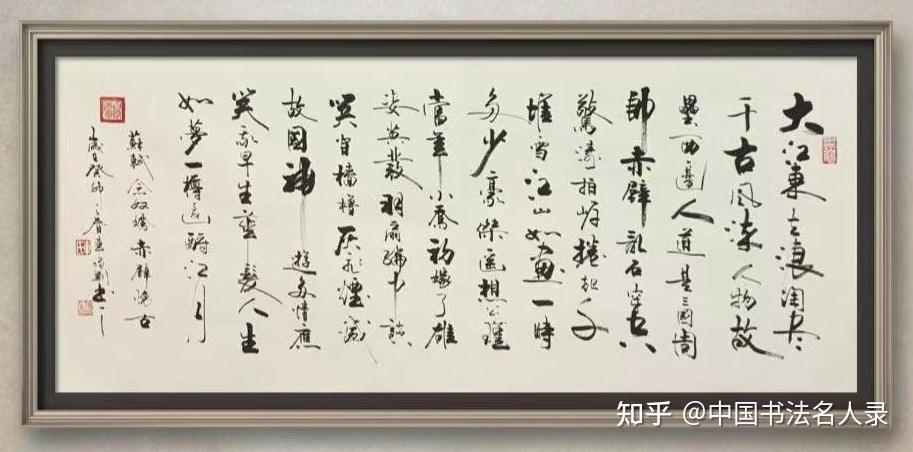 大江東去浪淘尽
千古風流人物故
壘西邊人道是三國周
郎赤壁亂石穿空
驚濤拍岸捲起千
堆雪江山如畫一時
多少豪傑遥想公瑾
當年小喬初嫁了雄
姿英發羽扇綸巾談
笑间檣櫓灰飛煙滅
故國神遊多情應
笑我早生華髮人生
如夢一樽還酹江月
蘇軾念奴嬌赤壁懷古
歲在癸卯春書
知乎 @中国书法名人录